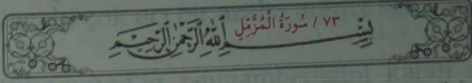 ٧٣ / سُورَةُ الْمُزَّمِّلِ
بِسْمِ اللَّهِ الرَّحْمَٰنِ الرَّحِيمِ